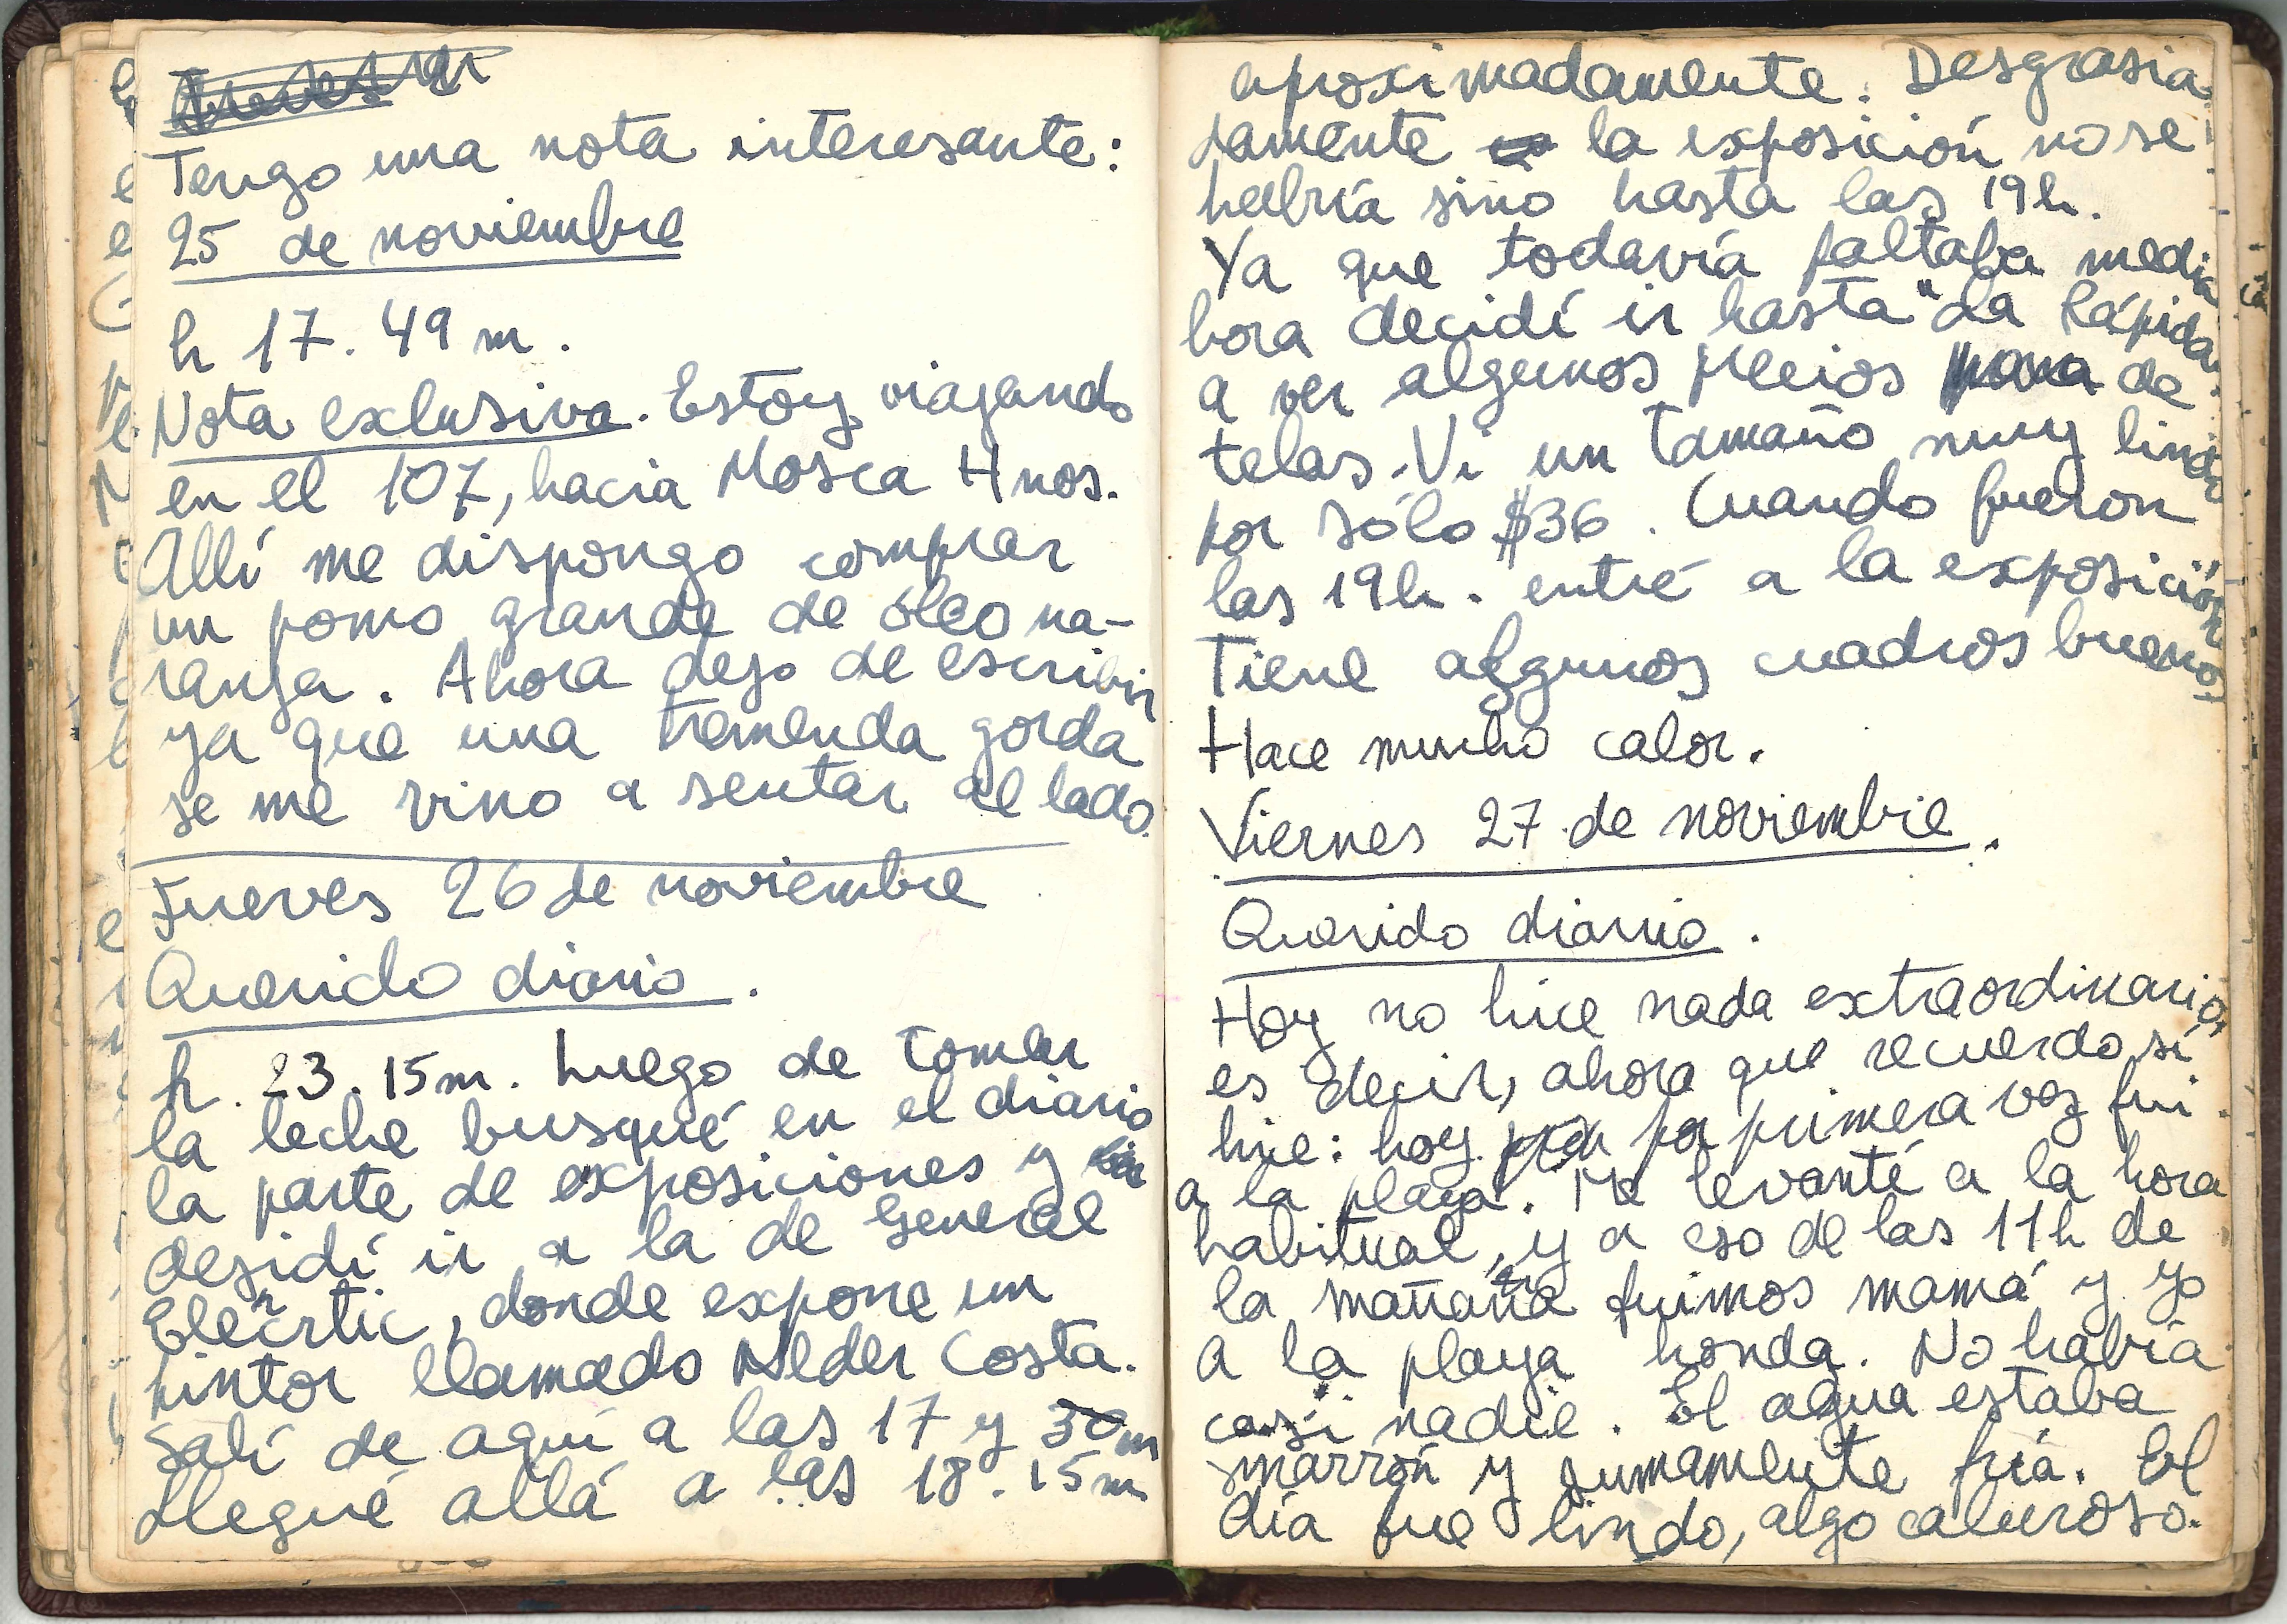 Tengo una nota interesante:
25 de noviembre
h 17. 49 m.
Nota exclusiva. Estoy viajando
en el 107, hacia Mosca Hnos.
Allí me dispongo comprar
un pomo grande de óleo na-
ranja. Ahora dejo de escribir
ya que una tremenda gorda
se me vino a sentar al lado.
Jueves 26 de noviembre
Querido diario.
h. 23. 15m. Luego de tomar
la leche busqué en el diario
la parte de exposiciones y
desidí ir a la de General
Elécrtic, donde expone un
pintor llamado Nelder Costa.
Salí de aquí a las 17 y 30m
Llegué allá a las 18. 15m
aproximadamente. Desgrasia-
damente la exposición no se
habría sino hasta las 19h.
Ya que todavía faltaba media
hora decidí ir hasta "La Rápida"
a ver algunos precios de
telas. Vi un tamaño muy lindo
por sólo $36. Cuando fueron
las 19h. entré a la exposición
Tiene algunos cuadros buenos
Hace mucho calor.
Viernes 27 de noviembre.
Querido diario.
Hoy no hice nada extraordinario,
es decir, ahora que recuerdo sí
hice: hoy por primera vez fui
a la playa. Me levanté a la hora
habitual, y a eso de las 11h de
la mañana fuimos mamá y yo
a la playa honda. No había
casi nadie. El agua estaba
marrón y sumamente fría. El
día fue lindo, algo caluroso.